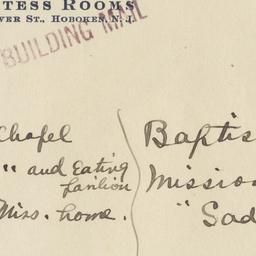 TESS ROOMS
VER ST., HOBOKEN, N. J.
BUILDING MAIL
Chapel
" and Eating
farilion
Miss. home.
Baptis
Mission
" Sad